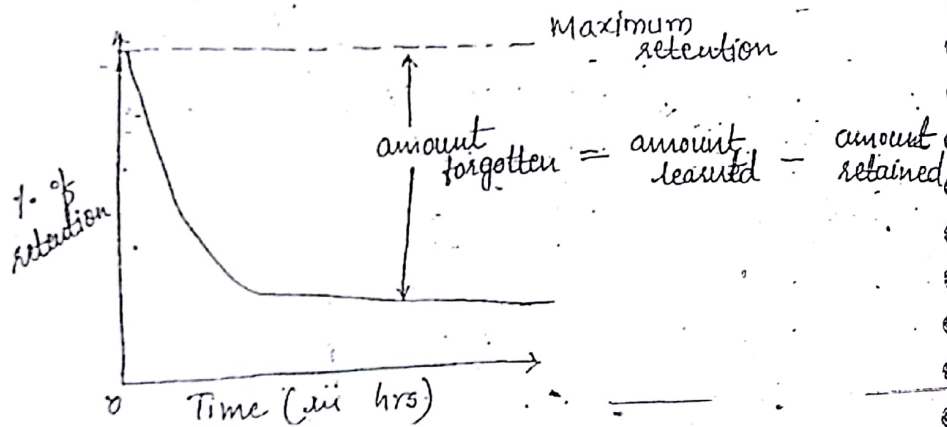 Maximum
retention
amount
forgotten = amount
learned - amount
retained
% of
retention
0
Time (in hrs)